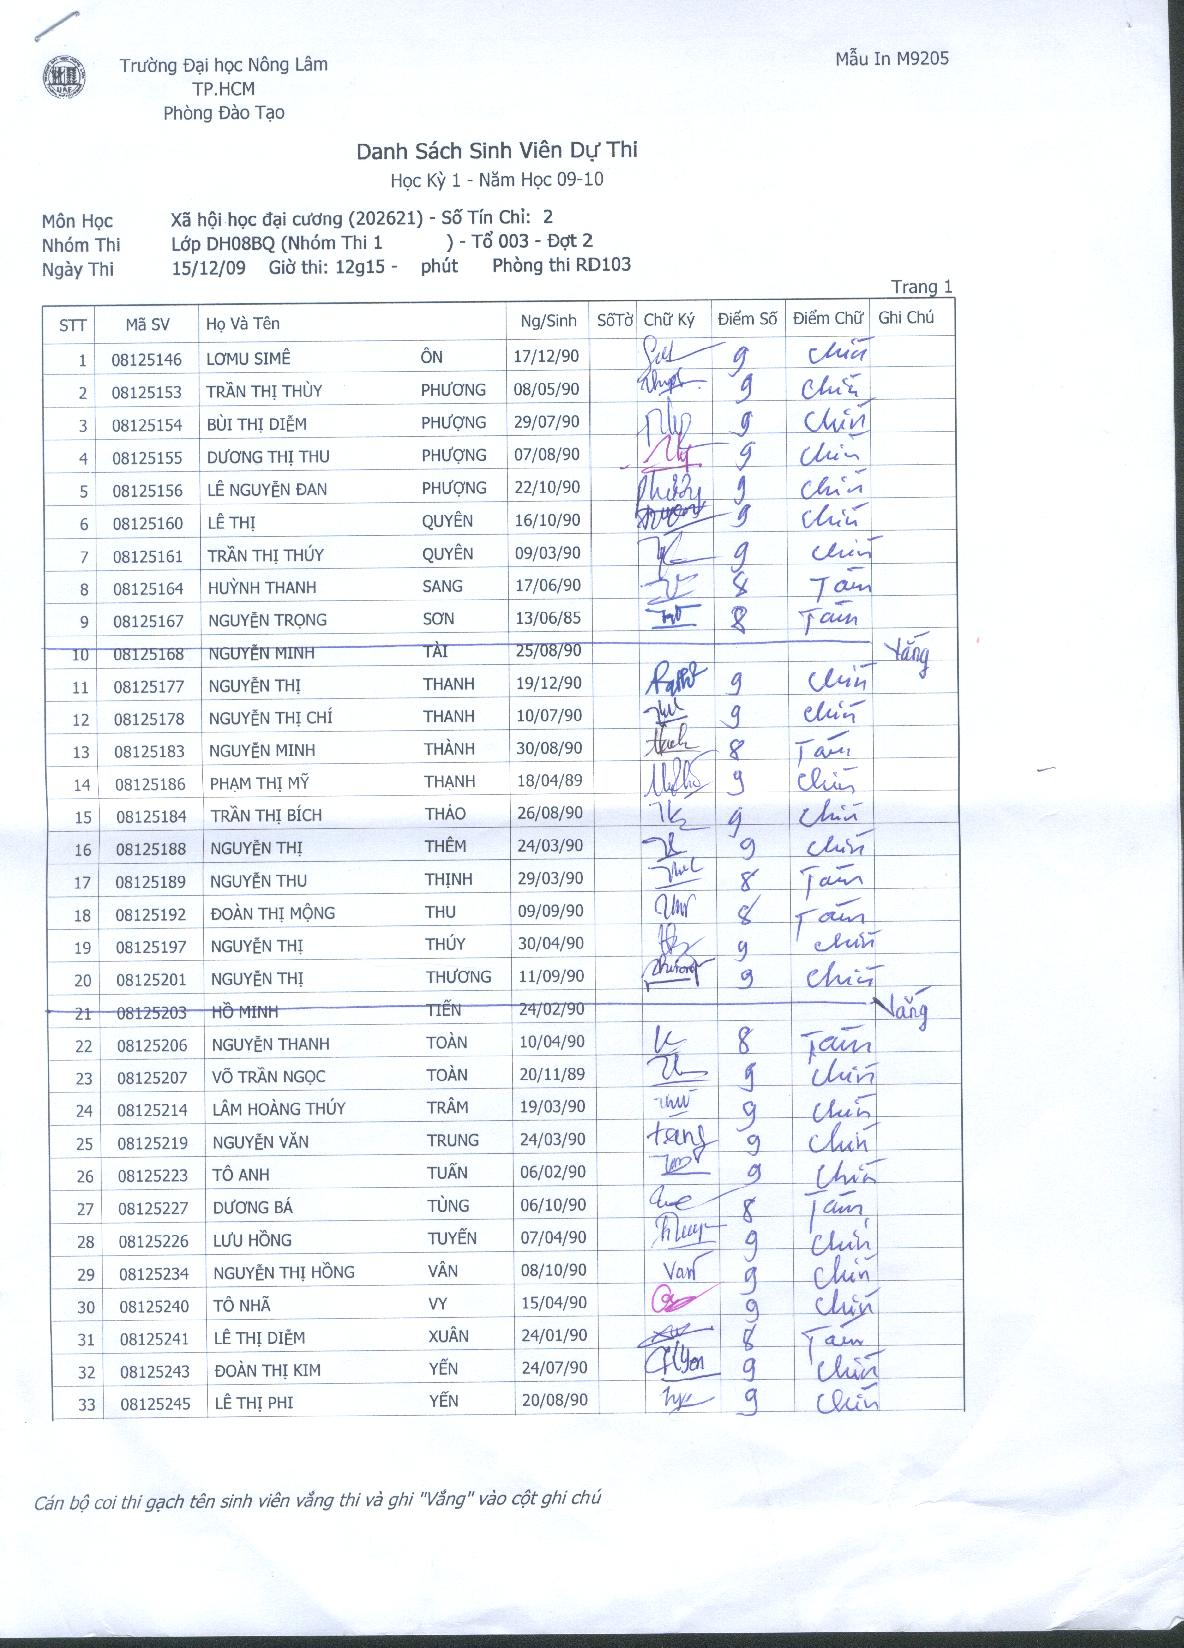 Trường Đại học Nông Lâm
TP.HCM
Phòng Đào Tạo
Mẫu In M9205
Danh Sách Sinh Viên Dự Thi
Học Kỳ 1 - Năm Học 09-10
Môn Học Xã hội học đại cương (202621) - Số Tín Chỉ: 2
Nhóm Thi Lớp DH08BQ (Nhóm Thi 1 ) - Tổ 003 - Đợt 2
Ngày Thi 15/12/09 Giờ thi: 12g15 - phút Phòng thi RD103
Trang 1
STT Mã SV Họ Và Tên Ng/Sinh SốTờ Chữ Ký Điểm Số Điểm Chữ Ghi Chú
1 08125146 LƠMU SIMÊ ÔN 17/12/90 9 Chín
2 08125153 TRẦN THỊ THÙY PHƯƠNG 08/05/90 9 Chín
3 08125154 BÙI THỊ DIỄM PHƯỢNG 29/07/90 9 Chín
4 08125155 DƯƠNG THỊ THU PHƯỢNG 07/08/90 9 Chín
5 08125156 LÊ NGUYỄN ĐAN PHƯỢNG 22/10/90 9 Chín
6 08125160 LÊ THỊ QUYÊN 16/10/90 9 Chín
7 08125161 TRẦN THỊ THÚY QUYÊN 09/03/90 9 Chín
8 08125164 HUỲNH THANH SANG 17/06/90 8 Tám
9 08125167 NGUYỄN TRỌNG SƠN 13/06/85 8 Tám
10 08125168 NGUYỄN MINH TÀI 25/08/90 Vắng
11 08125177 NGUYỄN THỊ THANH 19/12/90 9 Chín
12 08125178 NGUYỄN THỊ CHÍ THANH 10/07/90 9 Chín
13 08125183 NGUYỄN MINH THÀNH 30/08/90 8 Tám
14 08125186 PHẠM THỊ MỸ THẠNH 18/04/89 9 Chín
15 08125184 TRẦN THỊ BÍCH THẢO 26/08/90 9 Chín
16 08125188 NGUYỄN THỊ THÊM 24/03/90 9 Chín
17 08125189 NGUYỄN THU THỊNH 29/03/90 8 Tám
18 08125192 ĐOÀN THỊ MỘNG THU 09/09/90 8 Tám
19 08125197 NGUYỄN THỊ THÚY 30/04/90 9 Chín
20 08125201 NGUYỄN THỊ THƯƠNG 11/09/90 9 Chín
21 08125203 HỒ MINH TIẾN 24/02/90 Vắng
22 08125206 NGUYỄN THANH TOÀN 10/04/90 8 Tám
23 08125207 VÕ TRẦN NGỌC TOÀN 20/11/89 9 Chín
24 08125214 LÂM HOÀNG THÚY TRÂM 19/03/90 9 Chín
25 08125219 NGUYỄN VĂN TRUNG 24/03/90 9 Chín
26 08125223 TÔ ANH TUẤN 06/02/90 9 Chín
27 08125227 DƯƠNG BÁ TÙNG 06/10/90 8 Tám
28 08125226 LƯU HỒNG TUYẾN 07/04/90 9 Chín
29 08125234 NGUYỄN THỊ HỒNG VÂN 08/10/90 Vân 9 Chín
30 08125240 TÔ NHÃ VY 15/04/90 9 Chín
31 08125241 LÊ THỊ DIỄM XUÂN 24/01/90 8 Tám
32 08125243 ĐOÀN THỊ KIM YẾN 24/07/90 9 Chín
33 08125245 LÊ THỊ PHI YẾN 20/08/90 9 Chín
Cán bộ coi thi gạch tên sinh viên vắng thi và ghi "Vắng" vào cột ghi chú